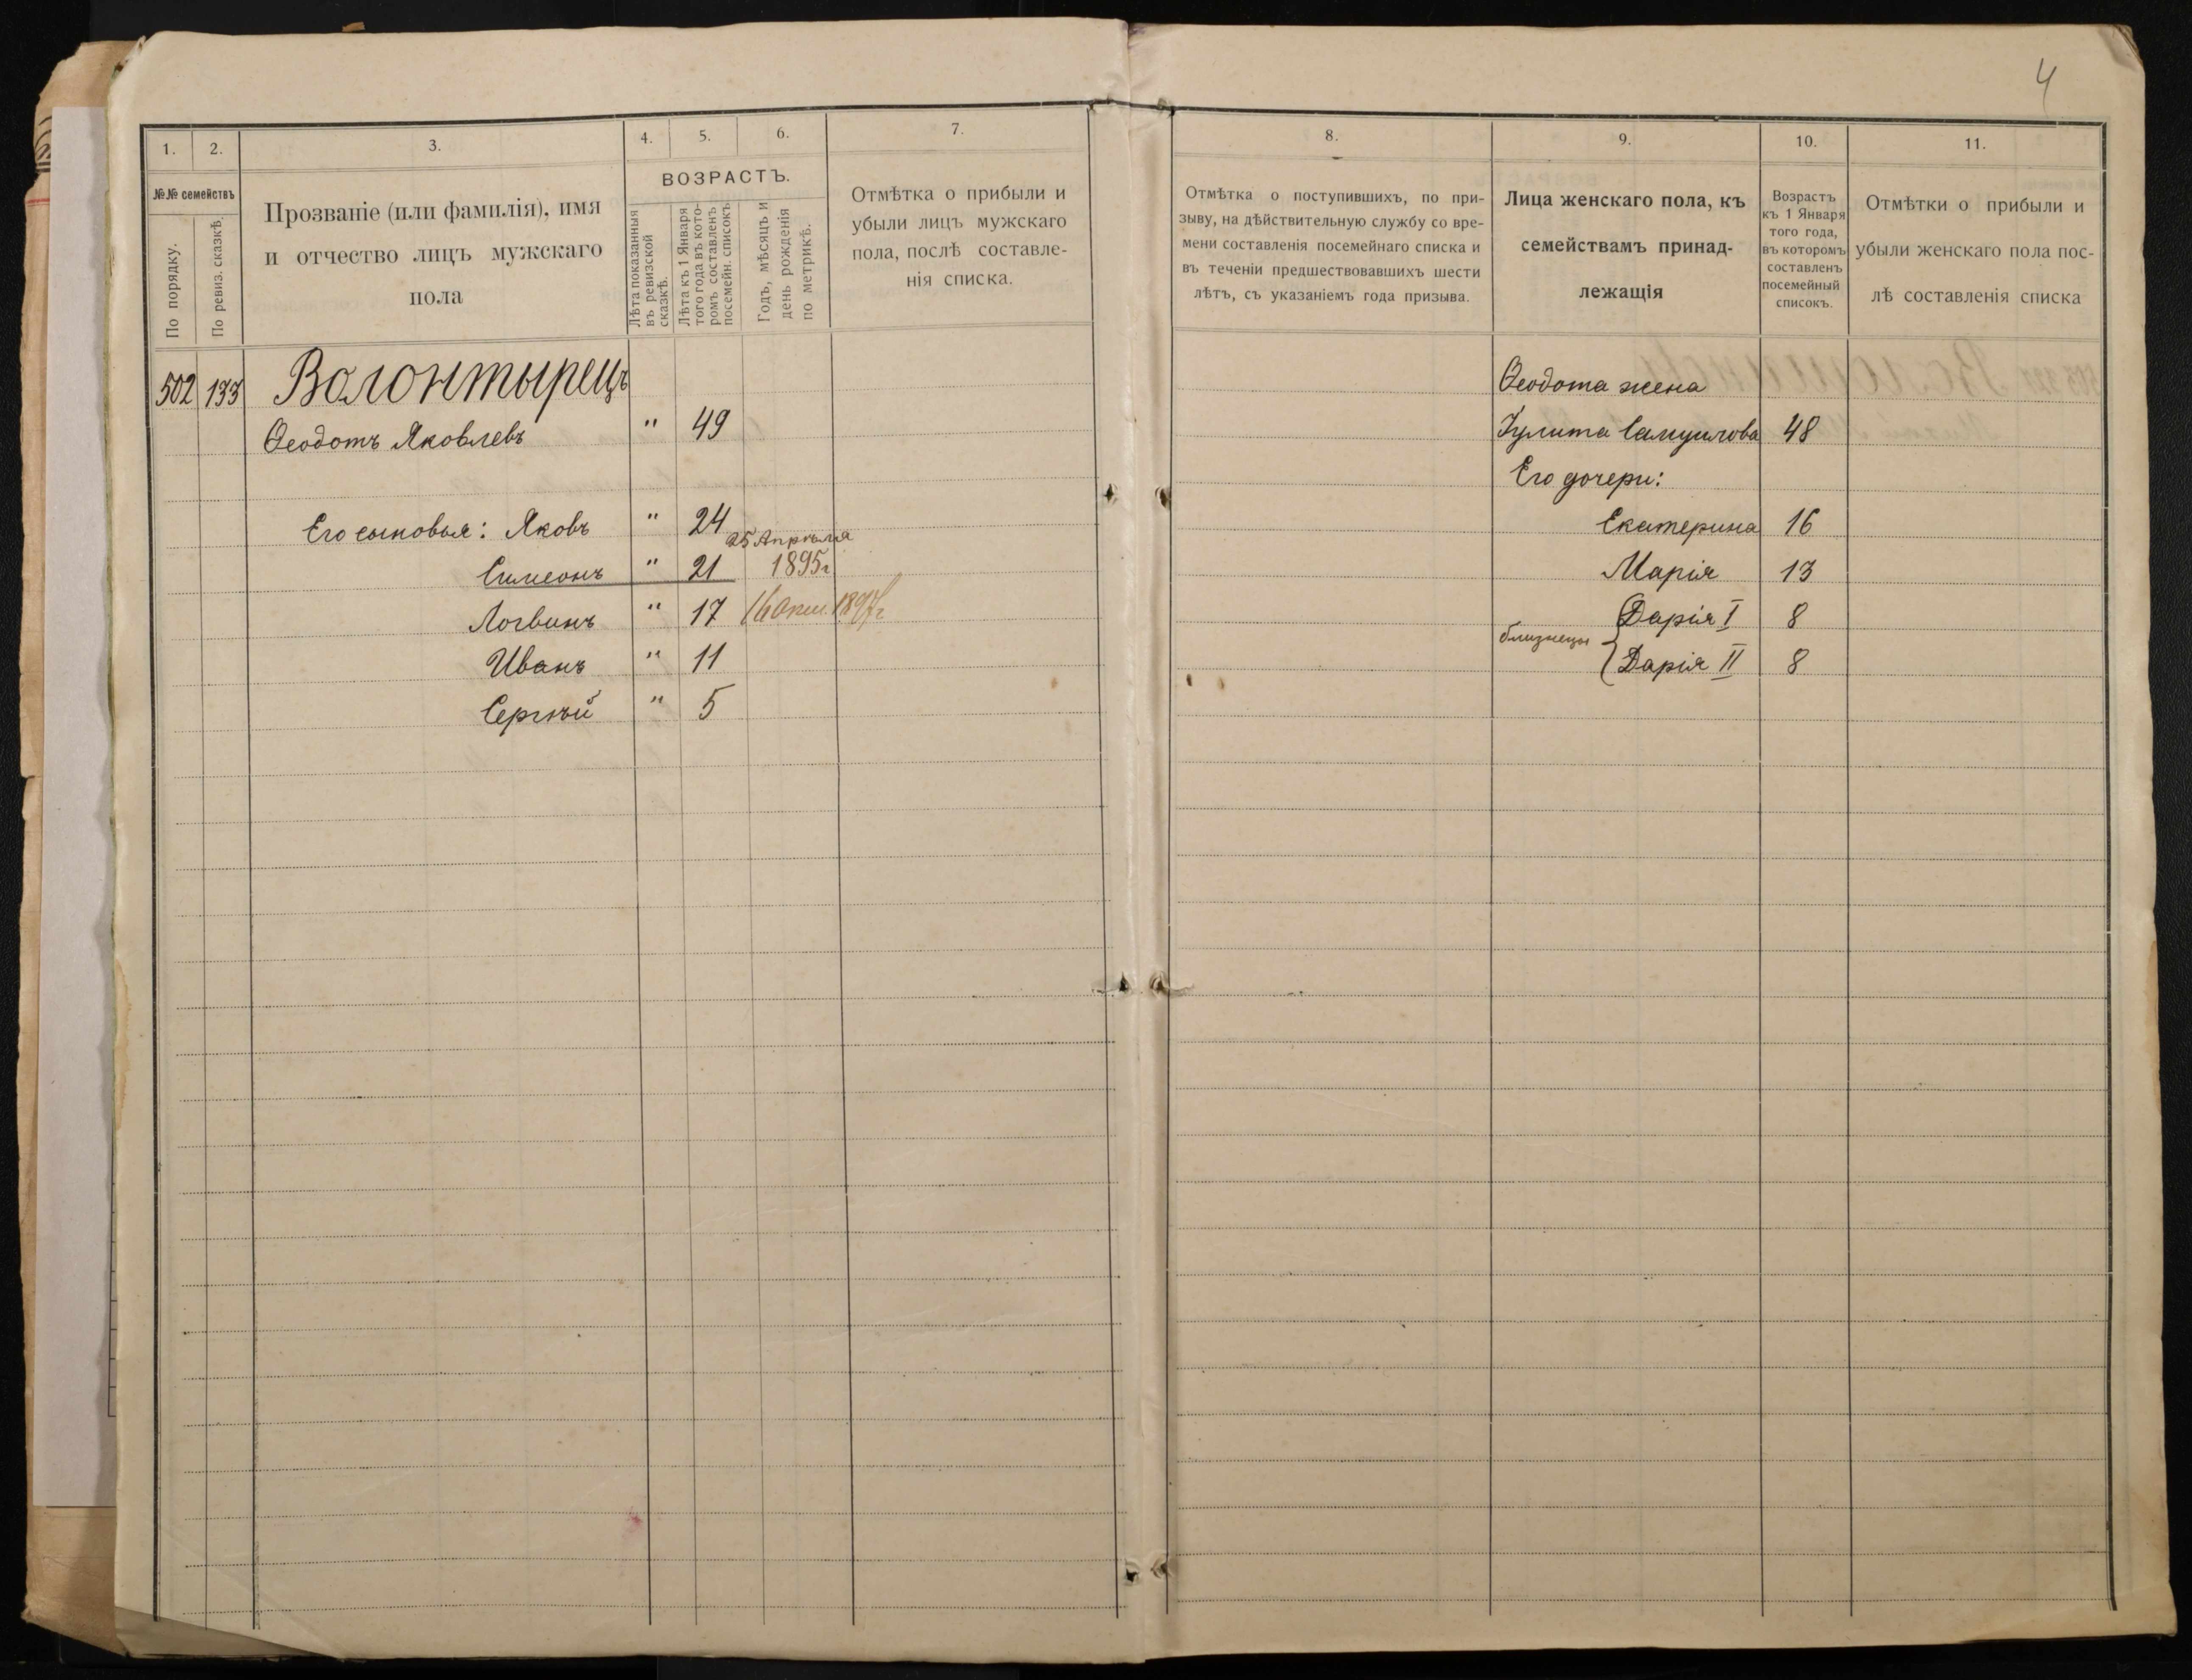 4
1.
2.
3.
4.
5.
6.
7.
№№ семействъ
По порядку.
По ревиз. сказкѣ.
Прозваніе (или фамилія), имя
и отчество лицъ мужскаго
пола
ВОЗРАСТЪ.
Лѣта показанныя
въ ревизской
сказкѣ.
Лѣта къ 1 Января
того года въ кото-
ромъ составленъ
посемейн. списокъ.
Годъ, мѣсяцъ и
день рожденія
по метрикѣ.
Отмѣтка о прибыли и
убыли лицъ мужскаго
пола, послѣ составле-
нія списка.
502 133 Волонтырецъ
Ѳеодотъ Яковлевъ " 49
Его сыновья: Яковъ " 24
25 Апрѣля
Симеонъ " 21 1895г
Логвинъ " 17 16 Окт. 1897г
Иванъ " 11
Сергѣй " 5
8.
9.
10.
11.
Отмѣтка о поступившихъ, по при-
зыву, на дѣйствительную службу со вре-
мени составленія посемейнаго списка и
въ теченіи предшествовавшихъ шести
лѣтъ, съ указаніемъ года призыва.
Лица женскаго пола, къ
семействамъ принад-
лежащія
Возрастъ
къ 1 Января
того года,
въ которомъ
составленъ
посемейный
списокъ.
Отмѣтки о прибыли и
убыли женскаго пола пос-
лѣ составленія списка
Ѳеодота жена
Іулита Самуилова 48
Его дочери:
Екатерина 16
Марія 13
Дарія I 8
близнецы
Дарія II 8